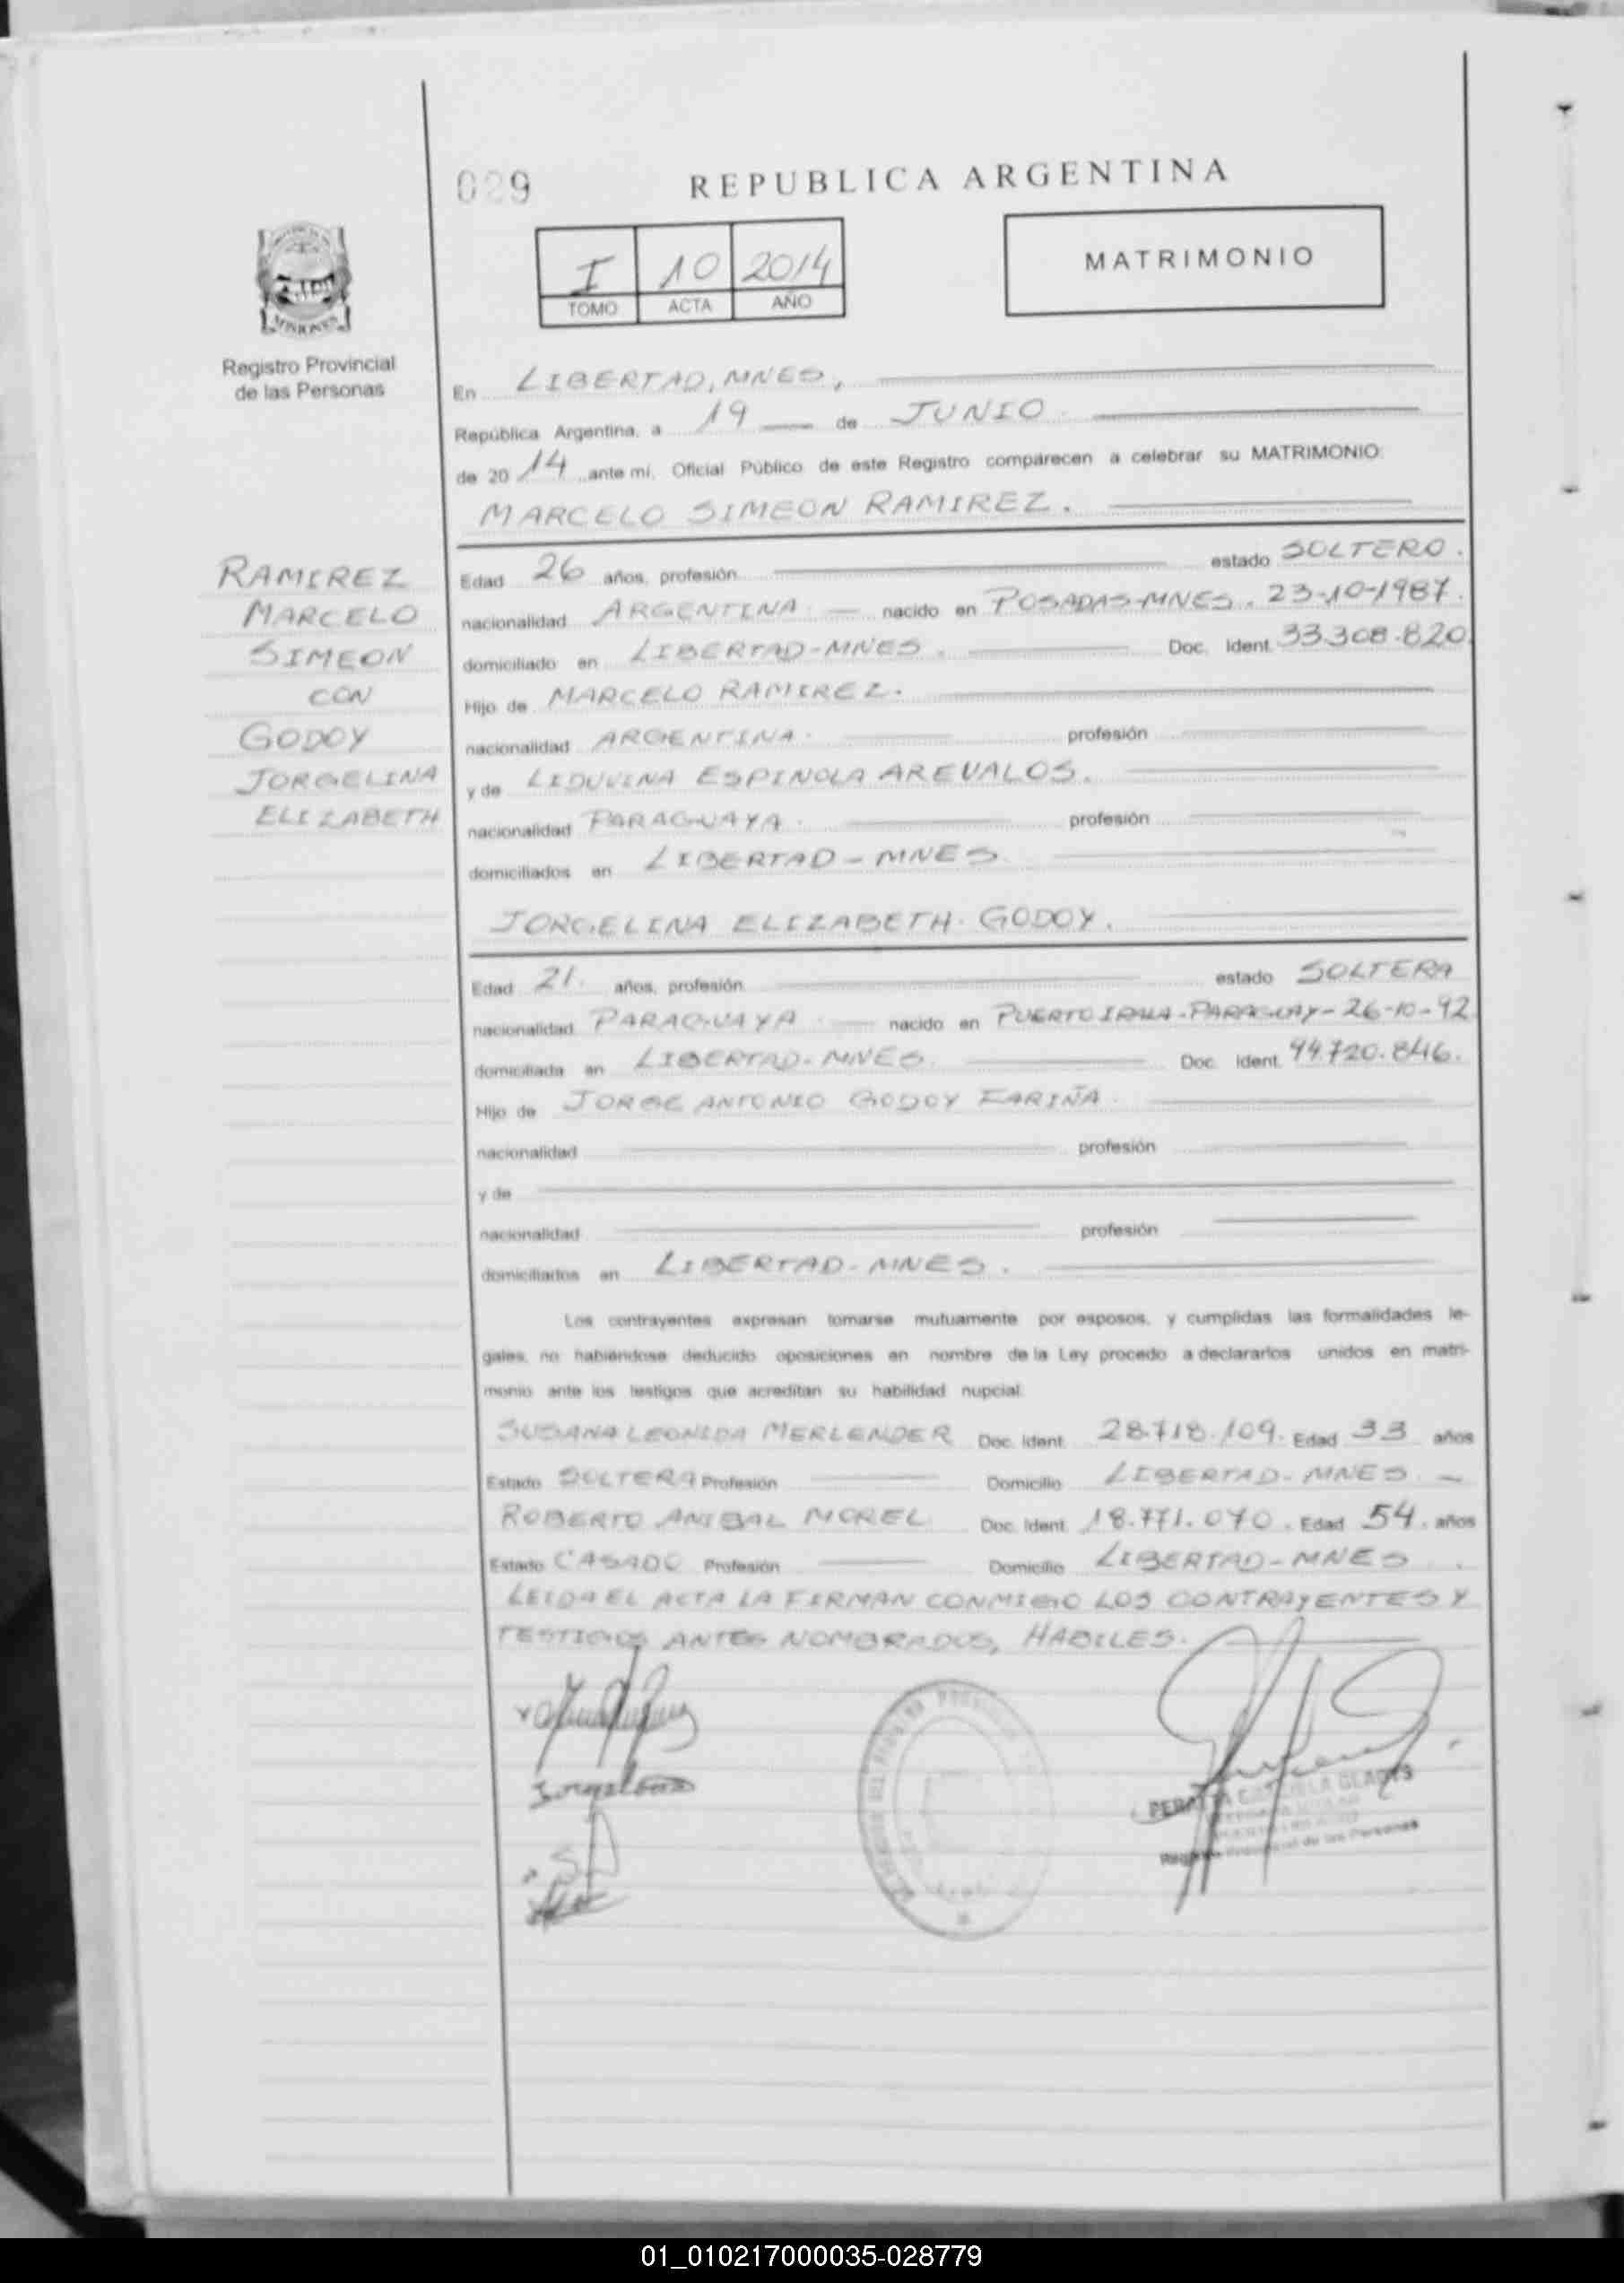 029
REPUBLICA ARGENTINA
I 10 2014
TOMO ACTA AÑO
MATRIMONIO
MISIONES
Registro Provincial
de las Personas
En LIBERTAD, MNES,
República Argentina, a 19 de JUNIO
de 20 14 ante mi, Oficial Público de este Registro comparecen a celebrar su MATRIMONIO:
MARCELO SIMEON RAMIREZ.
RAMIREZ
MARCELO
SIMEON
CON
GODOY
JORGELINA
ELIZABETH
Edad 26 años, profesión estado SOLTERO.
nacionalidad ARGENTINA nacido en POSADAS-MNES. 23-10-1987.
domiciliado en LIBERTAD-MNES. Doc. Ident. 33.308.820.
Hijo de MARCELO RAMIREZ.
nacionalidad ARGENTINA. profesión
y de LIDUVINA ESPINOLA AREVALOS.
nacionalidad PARAGUAYA. profesión
domiciliados en LIBERTAD - MNES
JORGELINA ELIZABETH GODOY.
Edad 21. años, profesión estado SOLTERA
nacionalidad PARAGUAYA nacido en PUERTO IRALA-PARAGUAY-26-10-92
domiciliada en LIBERTAD-MNES. Doc. Ident. 94.720.846.
Hijo de JORGE ANTONIO GODOY FARIÑA.
nacionalidad profesión
y de
nacionalidad profesión
domiciliados en LIBERTAD-MNES.
Los contrayentes expresan tomarse mutuamente por esposos, y cumplidas las formalidades le-
gales, no habiéndose deducido oposiciones en nombre de la Ley procedo a declararlos unidos en matri-
monio ante los testigos que acreditan su habilidad nupcial:
SUSANA LEONIDA MERLENDER Doc. Ident. 28.718.109. Edad 33 años
Estado SOLTERA Profesión Domicilio LIBERTAD-MNES
ROBERTO ANIBAL MOREL Doc. Ident. 18.771.070. Edad 54. años
Estado CASADO Profesión Domicilio LIBERTAD-MNES
LEIDA EL ACTA LA FIRMAN CONMIGO LOS CONTRAYENTES Y
TESTIGOS ANTES NOMBRADOS, HABILES.
Jorgelina
GLADYS
de las Personas
01_010217000035-028779